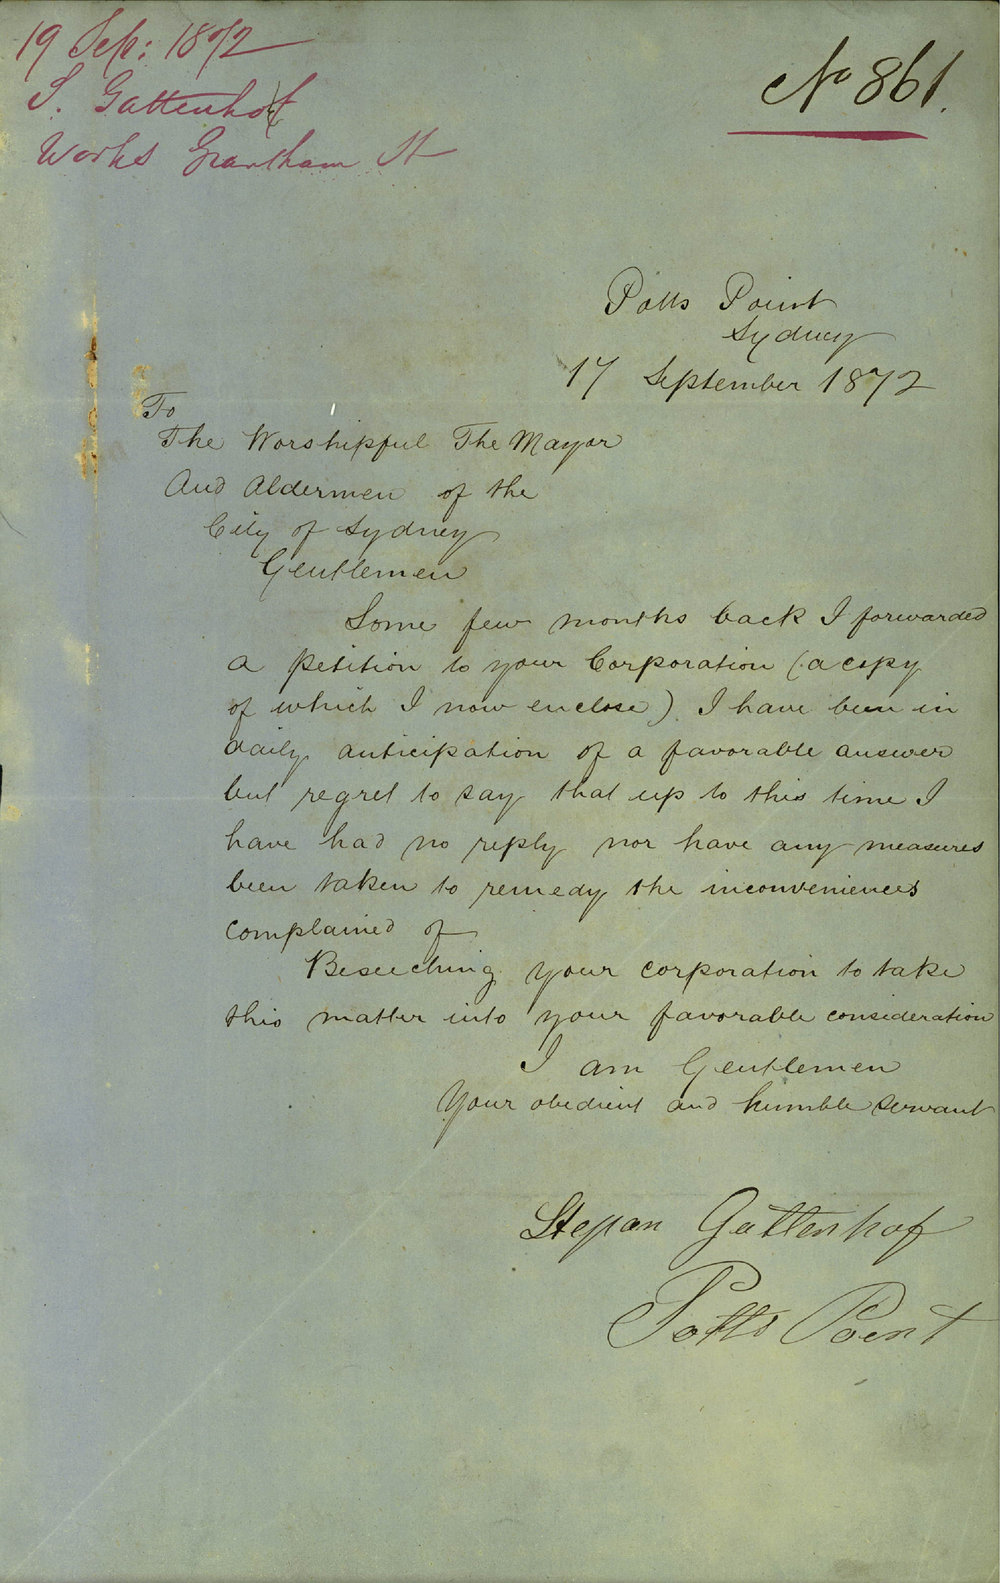 19 Sep: 1872
S. Gattenhof
Works Grantham St
No 861.
Potts Point
Sydney
17 September 1872
To
The Worshipful The Mayor
And Aldermen of the
City of Sydney
Gentlemen
Some few months back I forwarded
a petition to your Corporation (a copy
of which I now enclose) I have been in
daily anticipation of a favorable answer
but regret to say that up to this time I
have had no reply nor have any measures
been taken to remedy the inconveniences
complained of
Beseeching your corporation to take
this matter into your favorable consideration
I am Gentlemen
Your obedient and humble servant
Stepan Gattenhof
Potts Point